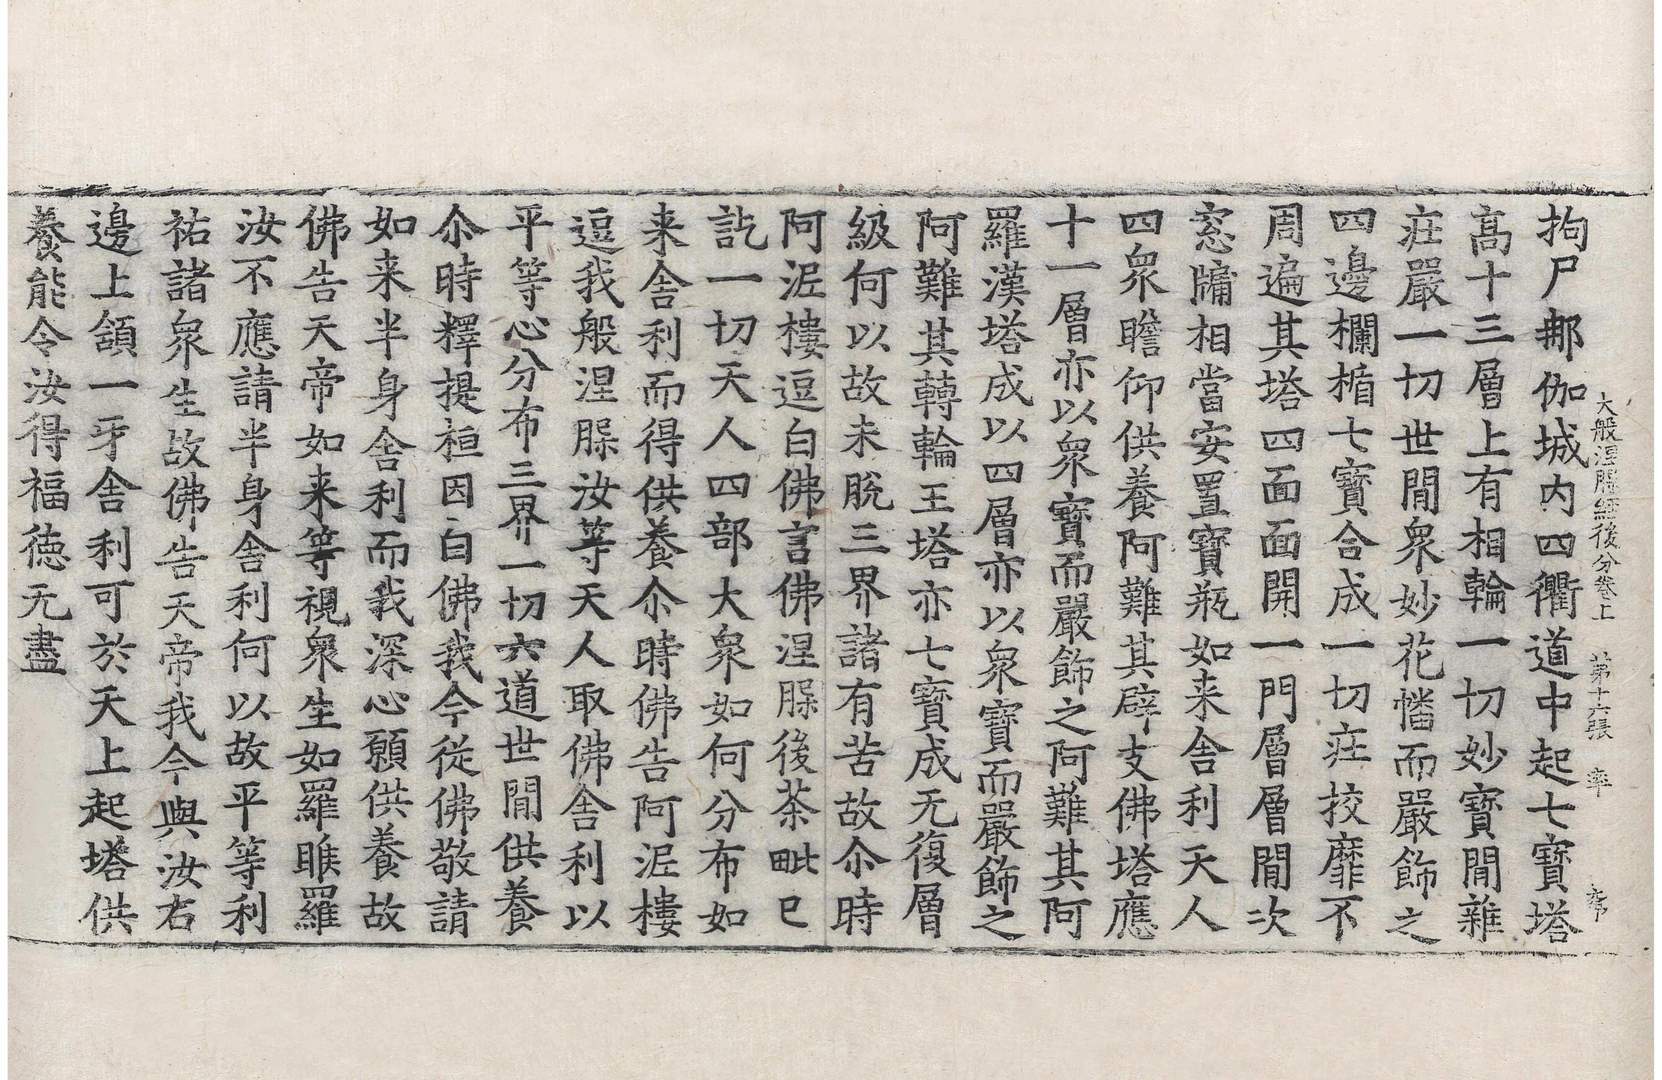 大般涅槃經後分卷上 第十六張 率
拘尸那伽城内四衢道中起七寶塔
髙十三層上有相輪一切妙寶閒雜
莊嚴一切世閒衆妙花幡而嚴飾之
四邊欄楯七寶合成一切莊挍靡不
周遍其塔四面面開一門層層閒次
窓牖相當安置寶瓶如来舍利天人
四衆瞻仰供養阿難其辟支佛塔應
十一層亦以衆寶而嚴飾之阿難其阿
羅漢塔成以四層亦以衆寶而嚴飾之
阿難其轉輪王塔亦七寶成无復層
級何以故未脫三界諸有苦故尒時
阿泥樓逗白佛言佛涅槃後茶毗已
訖一切天人四部大衆如何分布如
来舍利而得供養尒時佛告阿泥樓
逗我般涅槃汝等天人取佛舍利以
平等心分布三界一切六道世閒供養
尒時釋提桓因白佛我今從佛敬請
如来半身舍利而我深心願供養故
佛告天帝如来等視衆生如羅睺羅
汝不應請半身舍利何以故平等利
祐諸衆生故佛告天帝我今與汝右
邊上頷一牙舍利可於天上起塔供
養能令汝得福德无盡